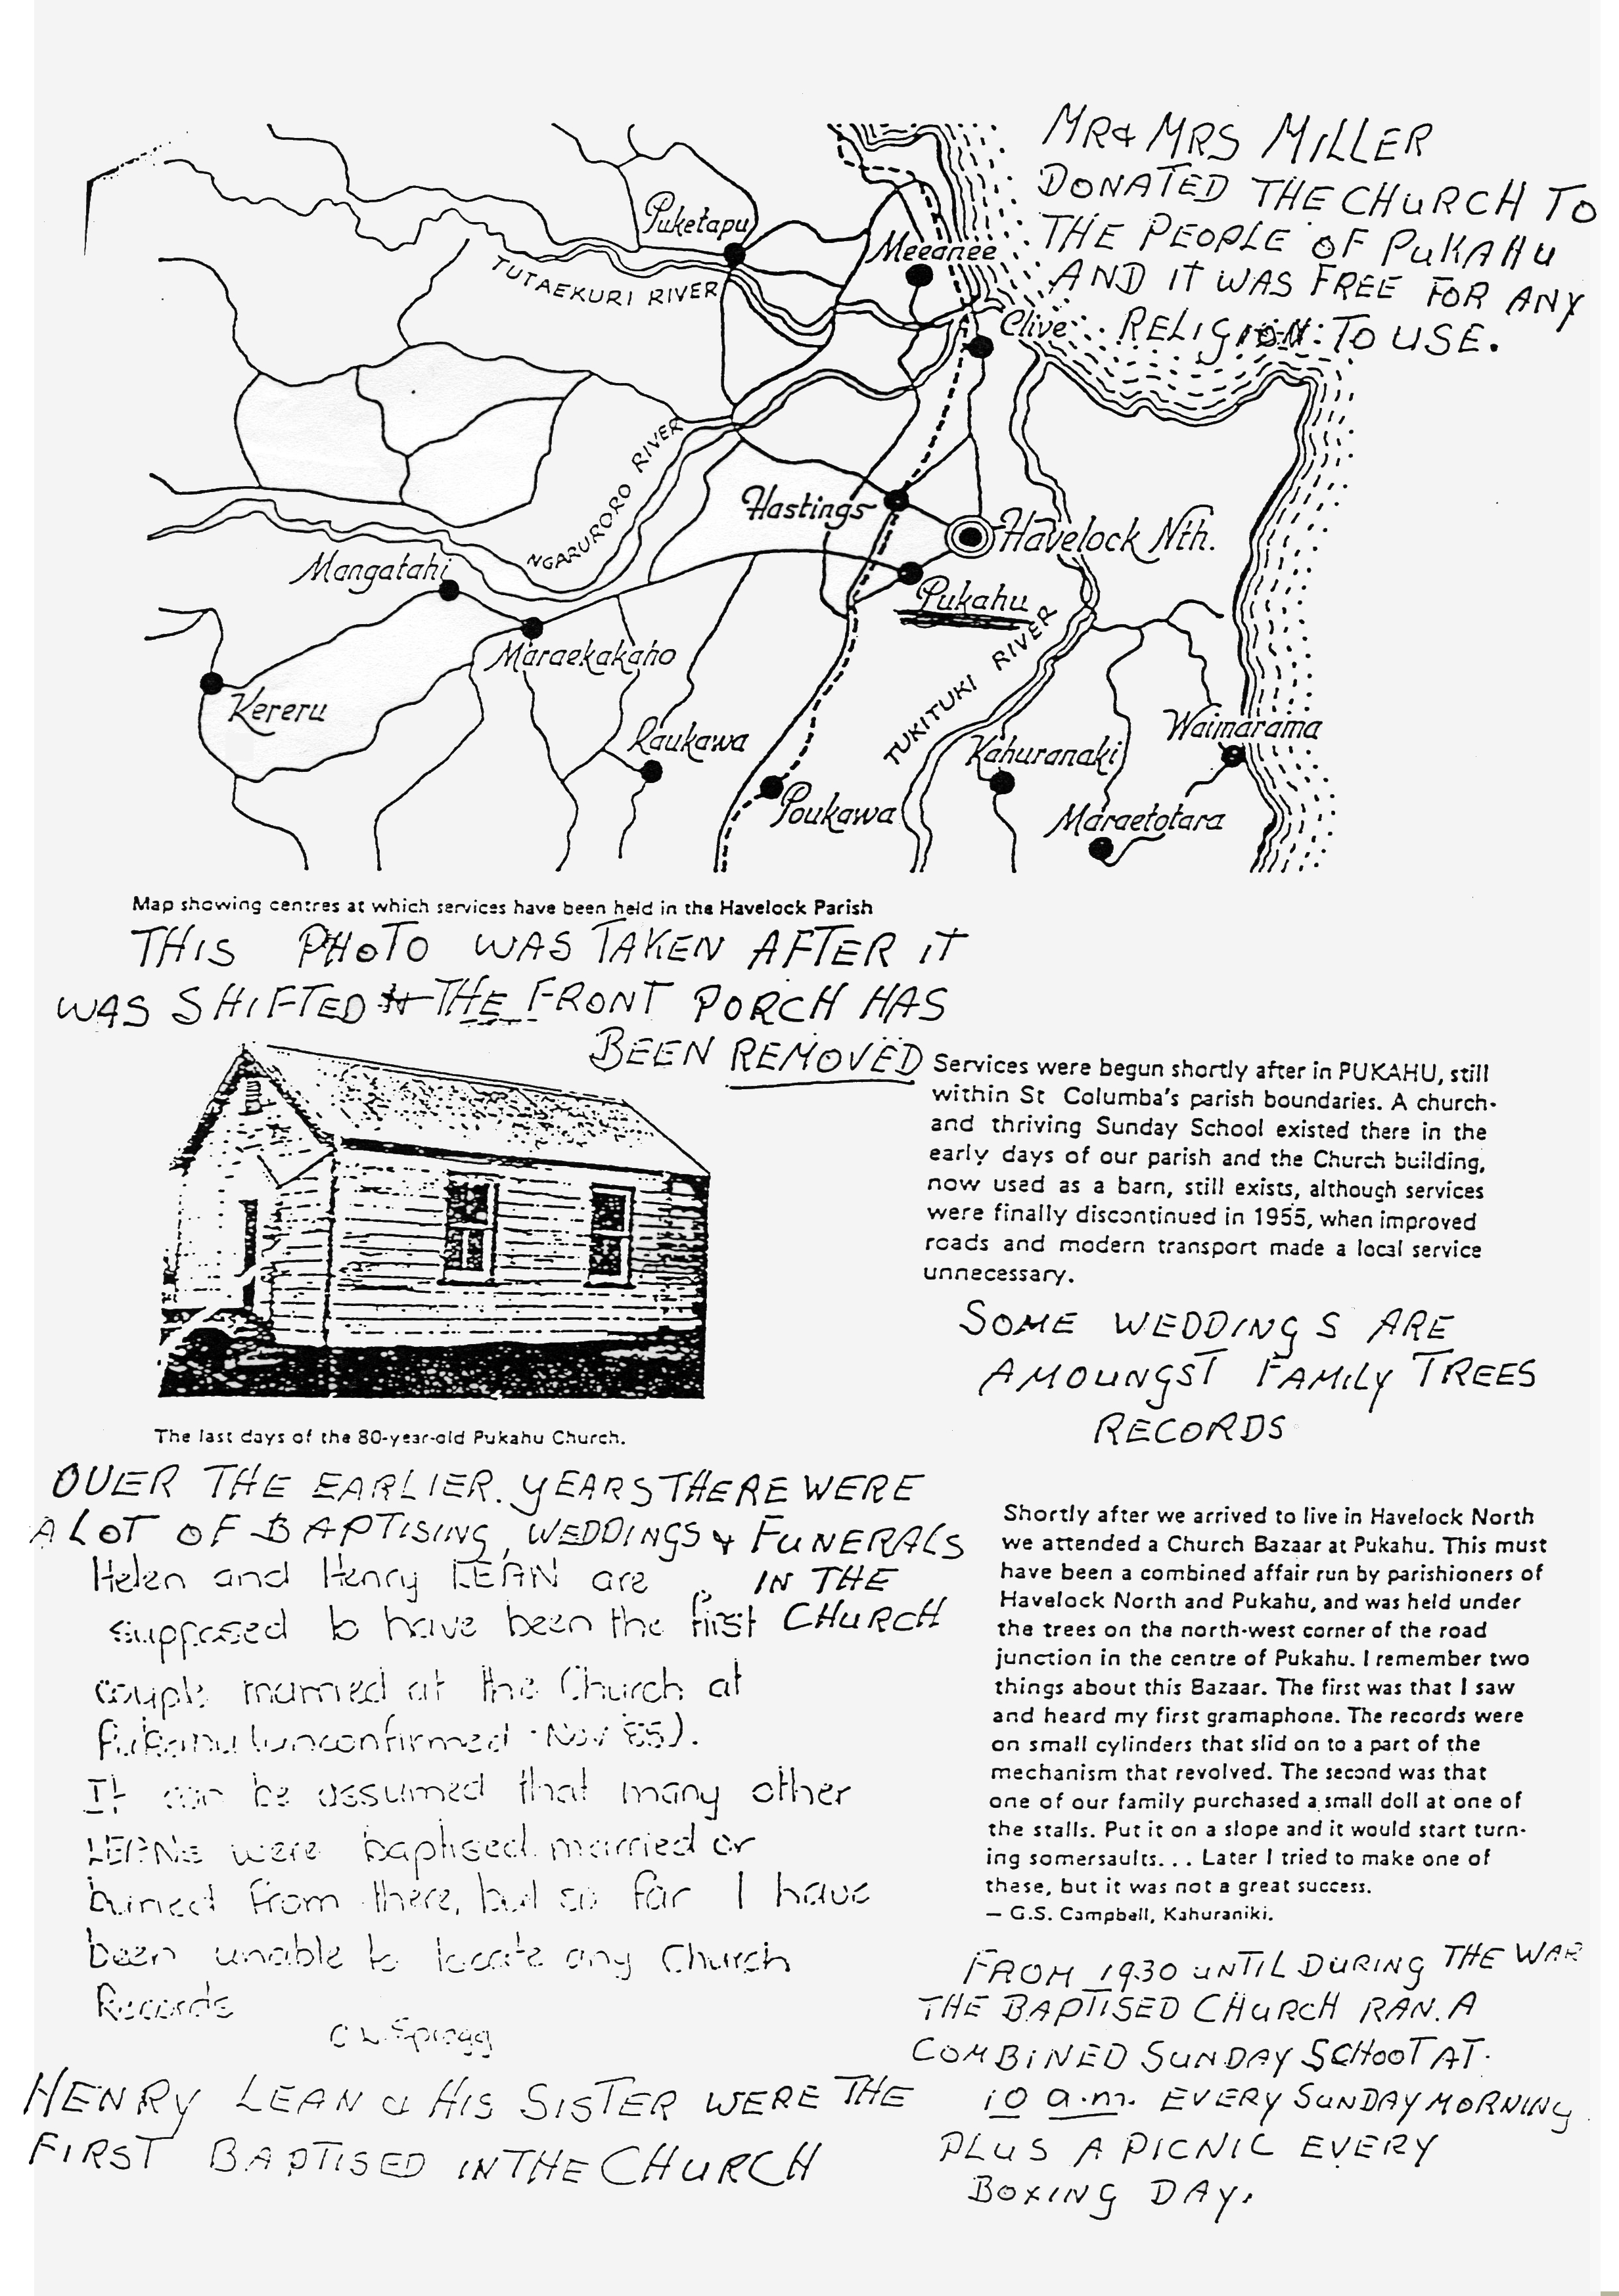 MR & MRS MILLER
DONATED THE CHURCH TO
THE PEOPLE OF PUKAHU
AND IT WAS FREE FOR ANY
RELIGION TO USE.
Puketapu
Meeanee
TUTAEKURI RIVER
Clive
NGARURORO RIVER
Hastings
Havelock Nth.
Mangatahi
Pukahu
Maraekakaho
TUKITUKI RIVER
Kereru
Raukawa
Waimarama
Kahuranaki
Poukawa
Maraetotara
Map showing centres at which services have been held in the Havelock Parish
THIS PHOTO WAS TAKEN AFTER IT
WAS SHIFTED THE FRONT PORCH HAS
BEEN REMOVED
Services were begun shortly after in PUKAHU, still
within St Columba's parish boundaries. A church-
and thriving Sunday School existed there in the
early days of our parish and the Church building,
now used as a barn, still exists, although services
were finally discontinued in 1955, when improved
roads and modern transport made a local service
unnecessary.
SOME WEDDINGS ARE
AMOUNGST FAMILY TREES
RECORDS
The last days of the 80-year-old Pukahu Church.
OVER THE EARLIER. YEARS THERE WERE
A LOT OF BAPTISING, WEDDINGS & FUNERALS
IN THE
CHURCH
Helen and Henry LEAN are
supposed to have been the first
couple married at the Church at
Pukahu (unconfirmed - Nov 85).
It can be assumed that many other
LEANs were baptised, married or
buried from there, but so far I have
been unable to locate any Church
Records
C L Spragg
HENRY LEAN & HIS SISTER WERE THE
FIRST BAPTISED IN THE CHURCH
Shortly after we arrived to live in Havelock North
we attended a Church Bazaar at Pukahu. This must
have been a combined affair run by parishioners of
Havelock North and Pukahu, and was held under
the trees on the north-west corner of the road
junction in the centre of Pukahu. I remember two
things about this Bazaar. The first was that I saw
and heard my first gramaphone. The records were
on small cylinders that slid on to a part of the
mechanism that revolved. The second was that
one of our family purchased a small doll at one of
the stalls. Put it on a slope and it would start turn-
ing somersaults. . . Later I tried to make one of
these, but it was not a great success.
— G.S. Campbell, Kahuraniki.
FROM 1930 UNTIL DURING THE WAR
THE BAPTISED CHURCH RAN. A
COMBINED SUNDAY SCHOOL AT.
10 a.m. EVERY SUNDAY MORNING
PLUS A PICNIC EVERY
BOXING DAY.